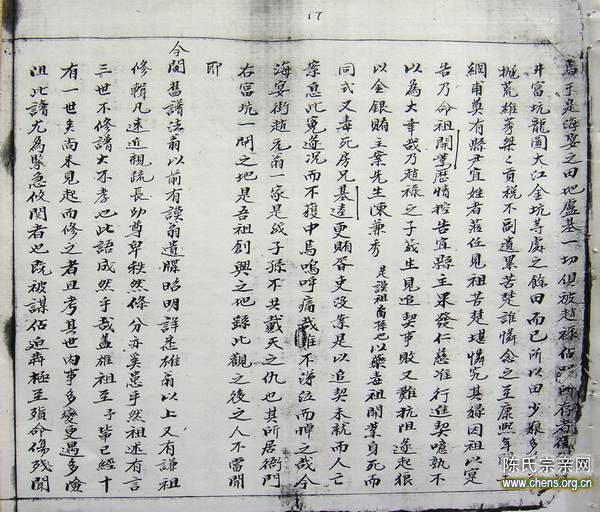 17
焉于是海宴之田地廬基一切俱被趙祿佔踞所存者僅
井富坑龍圍大江金坑等處之餘田而已所以田少糧多
拋荒雄夢榮之貢稅不副遺累苦楚誰憐念之至康熙年
綱甫奠有縣尹宜姓者蒞任見祖苦楚堪憐究其緣因祖以冤
告乃命祖開萬歷情控告宜縣主果發仁慈准行追契噫孰不
以為大幸哉乃趙祿之子義生見追契事敗又難抗阻遂起狠
以金銀賄主案先生陳兼秀 是謨祖商孫也以藥毒祖開葉自死而
同弐又毒死房兄基逵更賄胥吏沒案是以追契未就而人亡
案息此冤遂况而不獲中焉嗚呼痛哉誰不涕泣而憚之哉今
海宴街趙元翁一家是我子孫不共戴天之仇也其所居衙門
右富坑一開之地是吾祖創興之地錄此觀之後之人不當聞
即
今開舊譜法翁以前有謨翁遺牒昭明詳悉雄翁以上又有謙祖
修輯凡遠近親疏長幼尊卑秩然條分亦奚患乎然祖述有言
三世不修譜大不孝也此語成然乎哉蓋雄祖至子輩已經十
有一世矣尚未見起而修之者且考其世內事多變更遇多險
沮此譜尤為緊急攸関者也既被謀佔迫弄極至殞命傷殘聞
陈氏宗亲网
www.chens.org.cn